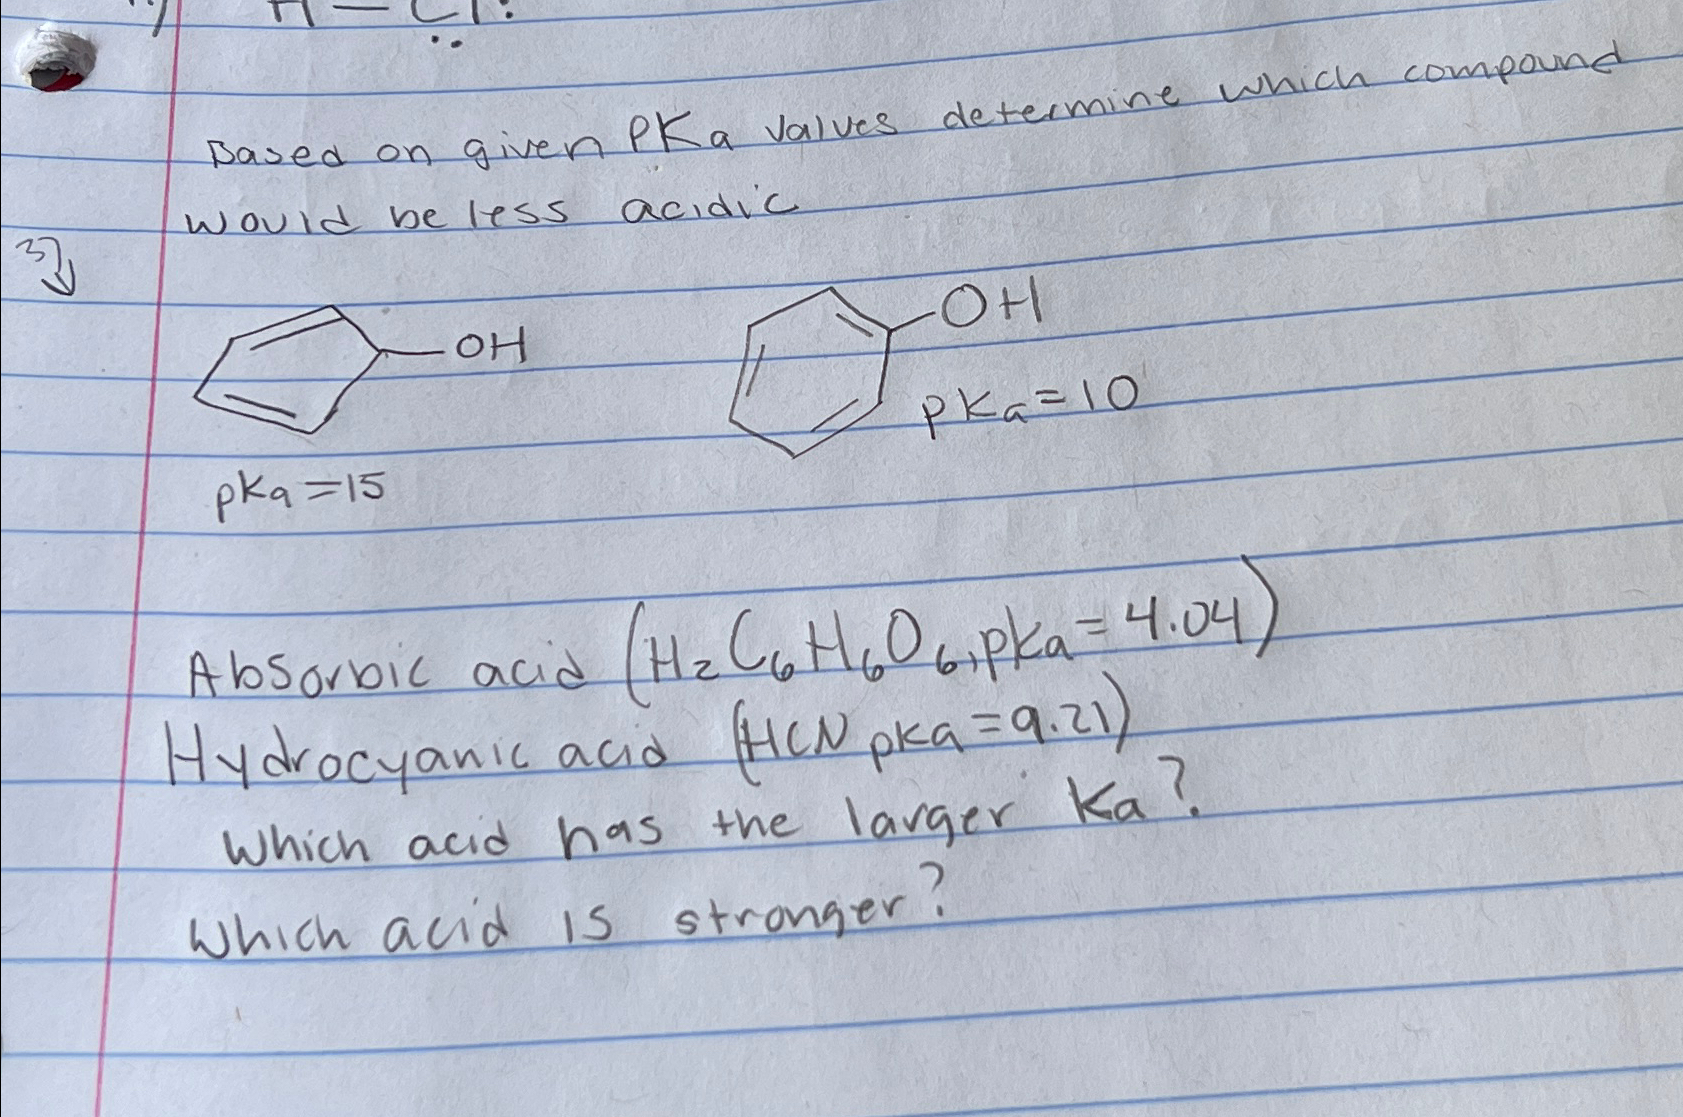 H — Cl:
Based on given PKa values determine which compound
would be less acidic
3)
OH
OH
pKa = 10
pKa = 15
Absorbic acid (H₂C₆H₆O₆, pka = 4.04)
Hydrocyanic acid (HCN pka = 9.21)
Which acid has the larger Ka?
Which acid is stronger?